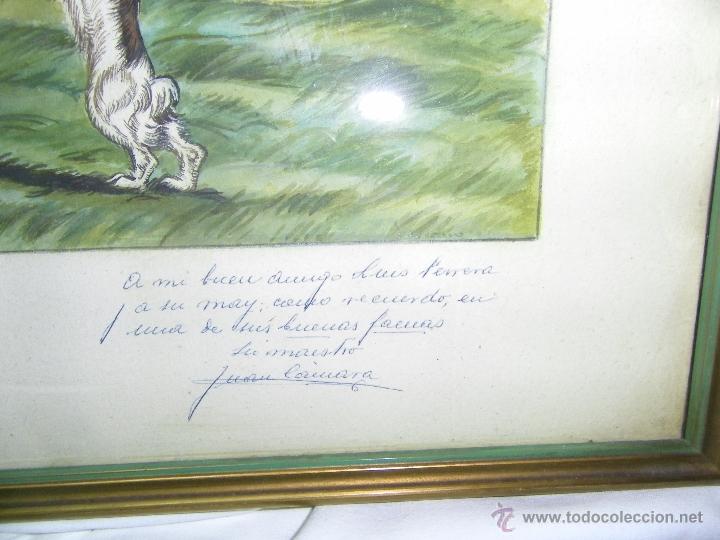 A mi buen amigo Luis Perrera
y a su may; como recuerdo, en
una de sús buenas faenas
su maestro
Juan Cámara
© www.todocoleccion.net